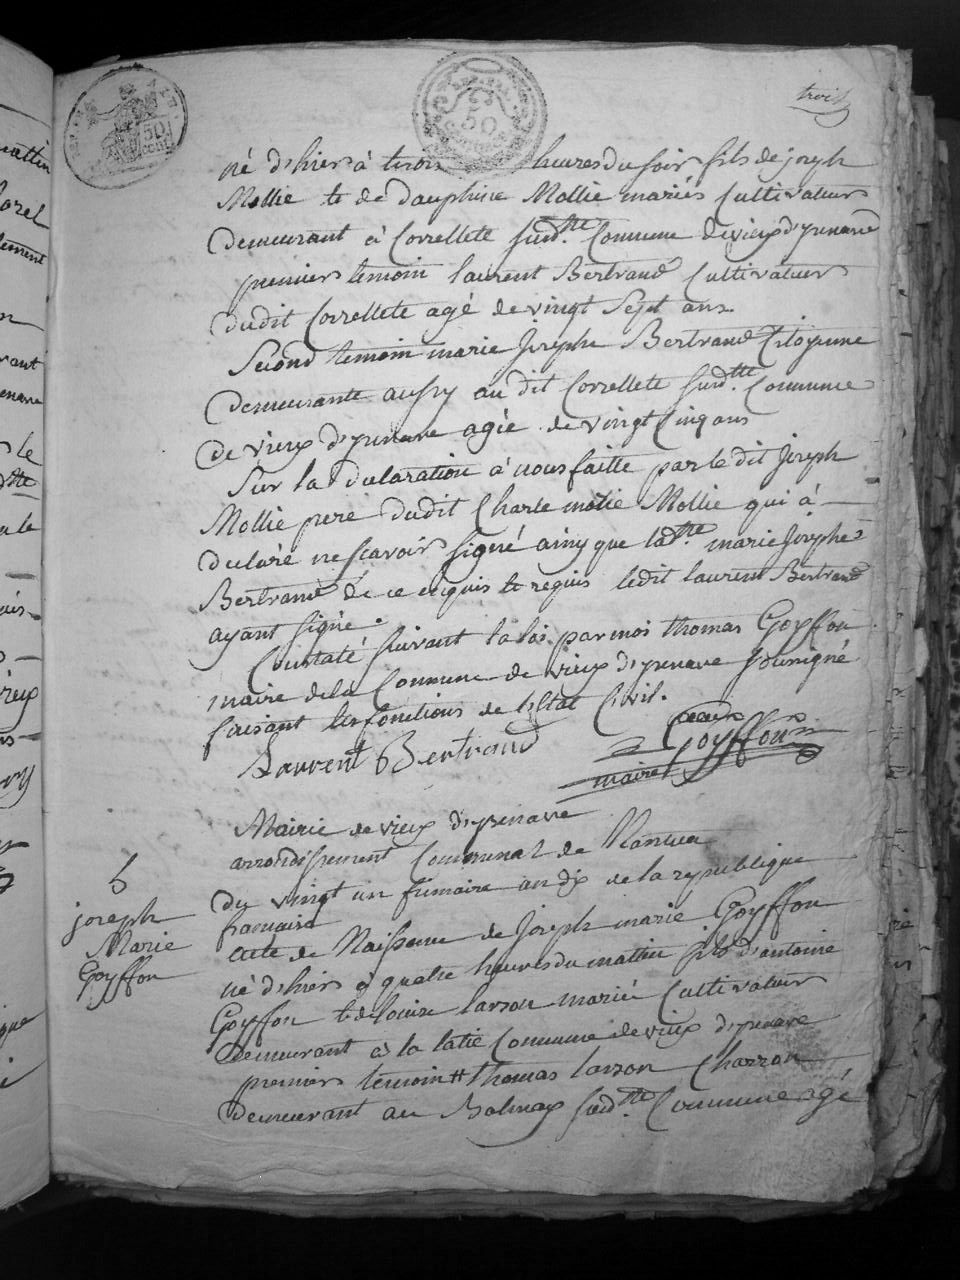 trois
né d'hier à trois heures du soir fils de joseph
Mollie & de Dauphine Mollie mariés Cultivateurs
Demeurant à Correllete susd.tte Commune de vieux d'yzenave
premier temoin laurent Bertrand Cultivateur
dudit Correllete agé de vingt Sept ans
Second temoin marie Josephe Bertrand Citoyenne
demeurante aussy au dit Correllete susd.tte Commune
de vieux d'yzenave agée de vingt Cinq ans
Sur la declaration à nous faitte par le dit Joseph
Mollie pere dudit Charle Mollie qui à
declaré ne scavoir signé ainsy que lad.tte marie Josephe
Bertrand de ce enquis & requis ledit laurent Bertrand
ayant signé
Constaté suivant la loi par moi thomas Goyffon
maire de la Commune de vieux d'yzenave soussigné
faisant les fonctions de l'Etat Civil.
Laurent Bertrand
Goyffon
maire
Mairie de vieux d'yzenave
arrondissement Communal de Nantua
du vingt un frimaire an dix de la republique
francaise
5
joseph
Marie
Goyffon
acte de Naissance de Joseph marie Goyffon
né d'hier à quatre heures du mattin fils d'antoine
Goyffon & de louise larson mariés Cultivateurs
demeurant à la latie Commune de vieux d'yzenave
premier temoin thomas larson Charron
demeurant au Balmay susd.tte Commune agé